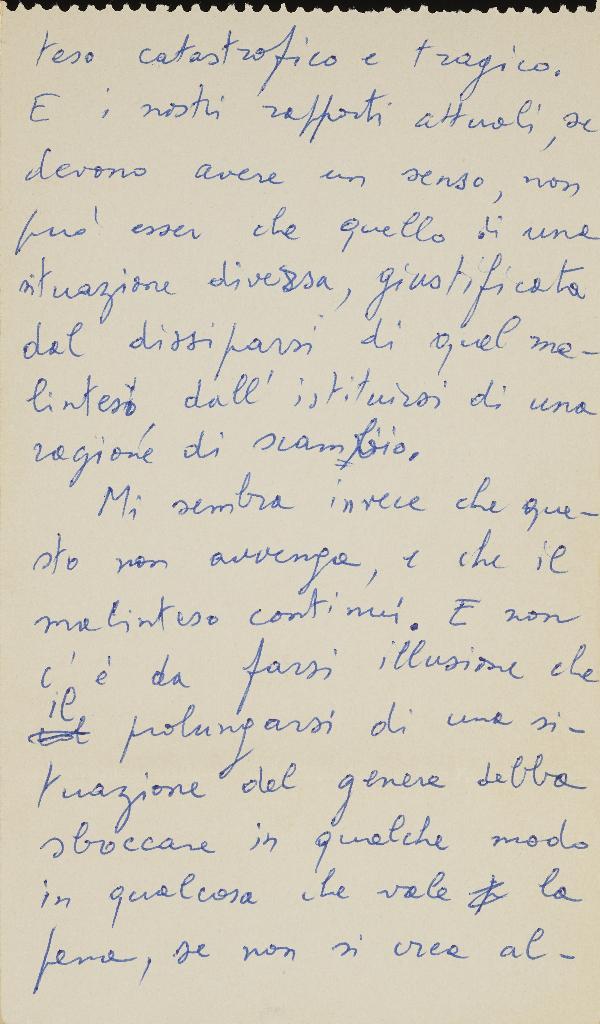 teso catastrofico e tragico.
E i nostri rapporti attuali, se
devono avere un senso, non
può esser che quello di una
situazione diversa, giustificata
dal dissiparsi di quel ma-
linteso, dall'istituirsi di una
ragione di scambio.
Mi sembra invece che que-
sto non avvenga, e che il
malinteso continui. E non
c'è da farsi illusione che
il prolungarsi di una si-
tuazione del genere debba
sboccare in qualche modo
in qualcosa che vale la
pena, se non si crea al-